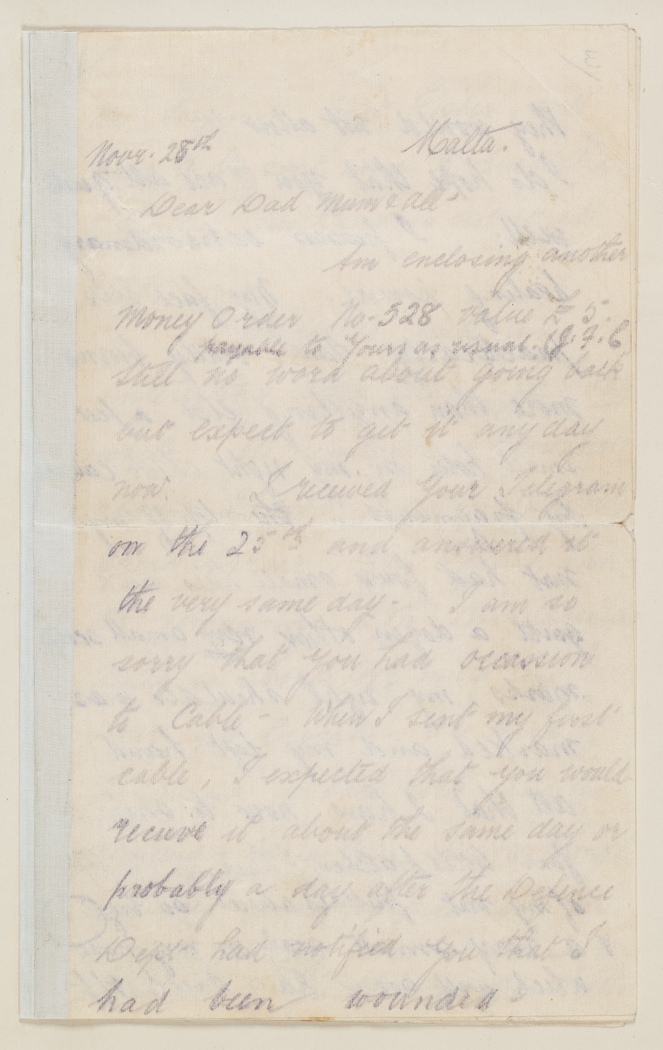 3
Novr. 28th Malta.
Dear Dad Mum & all
Am enclosing another
Money Order No. 528 value £5.
payable to Yours as usual.
Still no word about going back
but expect to get it any day
now. I received your Telegram
on the 25th and answered it
the very same day - I am so
sorry that you had occassion
to Cable - When I sent my first
cable, I expected that you would
receive it about the same day or
probably a day after the Defence
Dept had notified you that I
had been wounded